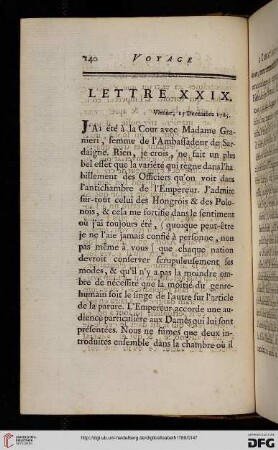 140 VOYAGE
LETTRE XXIX.
Vienne, 15 Decembre 1785.
J'Ai été à la Cour avec Madame Gra-
nieri, femme de l'Ambassadeur de Sar-
daigne. Rien, je crois, ne fait un plus
bel effet que la variété qui règne dans l'ha-
billement des Officiers qu'on voit dans
l'antichambre de l'Empereur. J'admire
sur-tout celui des Hongrois & des Polo-
nois, & cela me fortifie dans le sentiment
où j'ai toujours été, (quoique peut-être
je ne l'aie jamais confié à personne, non
pas même à vous) que chaque nation
devroit conserver scrupuleusement ses
modes, & qu'il n'y a pas la moindre om-
bre de nécessité que la moitié du genre-
humain soit le singe de l'autre sur l'article
de la parure. L'Empereur accorde une au-
dience particulière aux Dames qui lui sont
présentées. Nous ne fûmes que deux in-
troduites ensemble dans la chambre où il
http://digi.ub.uni-heidelberg.de/diglit/
UNIVERSITÄTS-
BIBLIOTHEK
HEIDELBERG
Gefördert durch
DFG